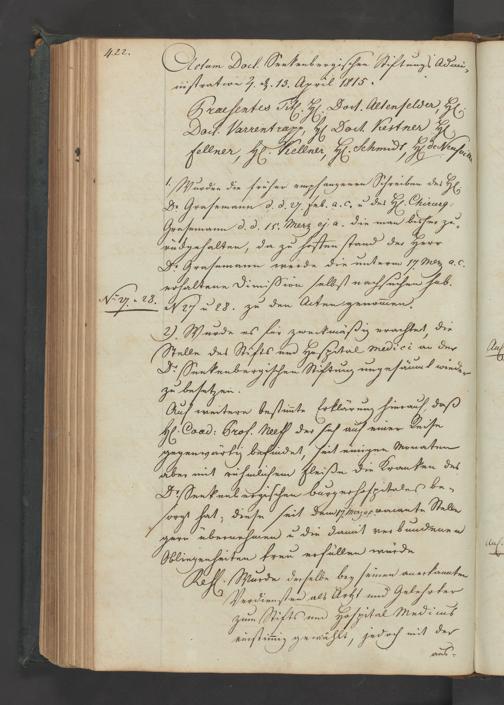 422.
Actum Doct. Senkenbergischen Stiftungs Admi-
nistration d. 13. April 1815.
Praesentes Tit. H. Doct. Altenfelder, H.
Doct. Varrentrapp, H. Doct. Kestner H.
Fellner, H. Kellner, H. Schmidt, H. de Neufville
1. Wurden die früher empfangenen Schreiben des H.
Dr. Grasemann d. d. 27 Feb. a. c. u des H. Chirurg.
Grasemann d. d. 15. Merz ej. a. die man bisher zu-
rückgehalten, da zu hoffen stand der Herr
Dr. Grasemann werde die unterm 17 Merz a. c.
erhaltene Dimission selbst nachsuchen
No. 27. - 28.
No 27 u 28. zu den Acten genommen.
2) Wurde es für zweckmäßig erachtet, die
Stelle des Stifts und Hospital Medici an der
Dr. Senkenbergischen Stiftung ungesäumt wieder
zu besetzen.
Auf weitere bestimmte Erklärung hierauf, daß
H. Coad: Prof. Neeff der sich auf einer Reise
gegenwärtig befindet, seit einigen Monaten
aber mit rühmlichem Fleiße die Kranken des
Dr. Senkenbergischen Bürgerhospitales be-
sorgt hat, diese seit dem 17 Merz vacante Stelle
gern übernehmen u die damit verbundenen
Obliegenheiten treu erfüllen würde
Resl. Wurde derselbe bey seinen anerkannten
Verdiensten als Arzt und Gelehrter
zum Stifts und Hospital Medicus
einstimmig gewählt, jedoch mit der
aus-